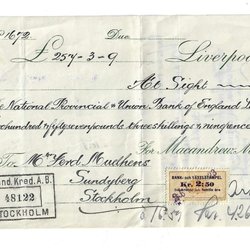 £1672 Due
£257-3-9 Liverpool
At Sight
National Provincial & Union Bank of England
hundred & fifty seven pounds three shillings & ninepence
To Mr Ferd Mudhens For Macandrew
Sundyberg
Stockholm
nd. Kred. A.B.
48122
STOCKHOLM
BANK- och VÄXELSTÄMPEL
Kr. 2:50